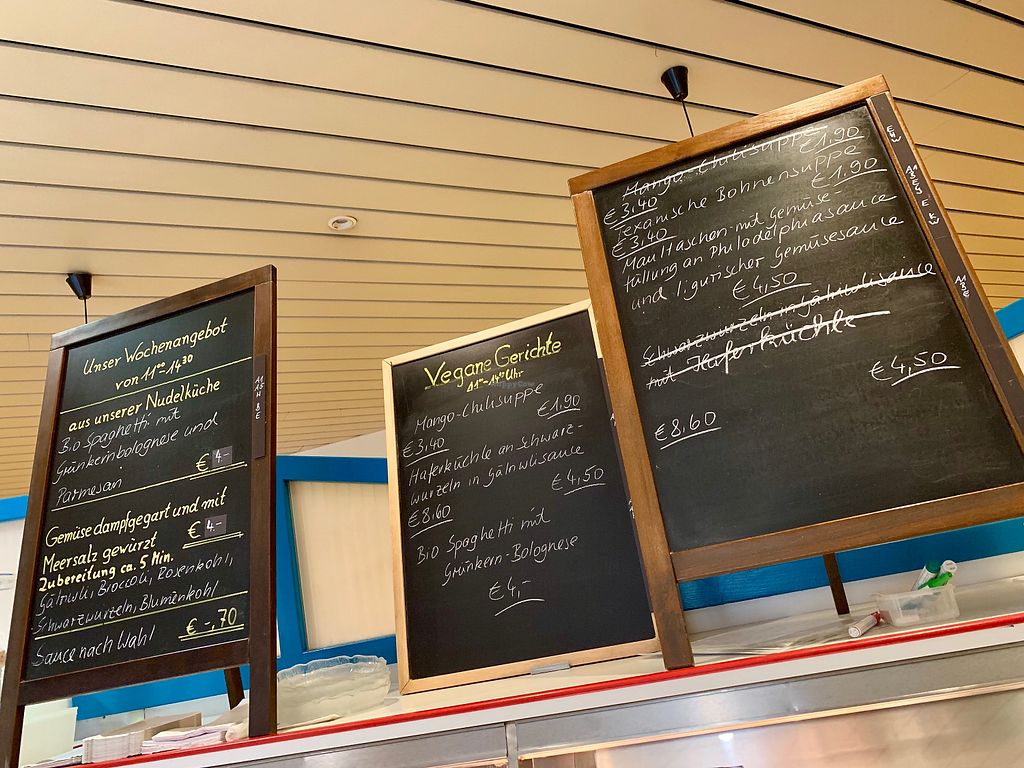 Unser Wochenangebot
von 11⁰⁰-14³⁰
aus unserer Nudelküche
Bio Spaghetti mit
Grünkernbolognese und
€ 4.-
Parmesan
Gemüse dampfgegart und mit
Meersalz gewürzt € 4.-
Zubereitung ca. 5 Min.
Brokkoli, Rosenkohl,
Schwarzwurzeln, Blumenkohl
Sauce nach Wahl € -,70
Vegane Gerichte
Mango-Chilisuppe
€1,90
€3,40
Haferküchle an Schwarz-
wurzeln in
€4,50
€8,60
Bio Spaghetti mit
Grünkern-Bolognese
€ 4,-
Mango-Chilisuppe
€1,90
€3,40
Texanische Bohnensuppe
€1,90
€3,40
Maultaschen mit Gemüse-
füllung an Philadelphiasauce
und ligurischer Gemüsesauce
€4,50
Schwarzwurzeln in
mit Haferküchle
€4,50
€8,60